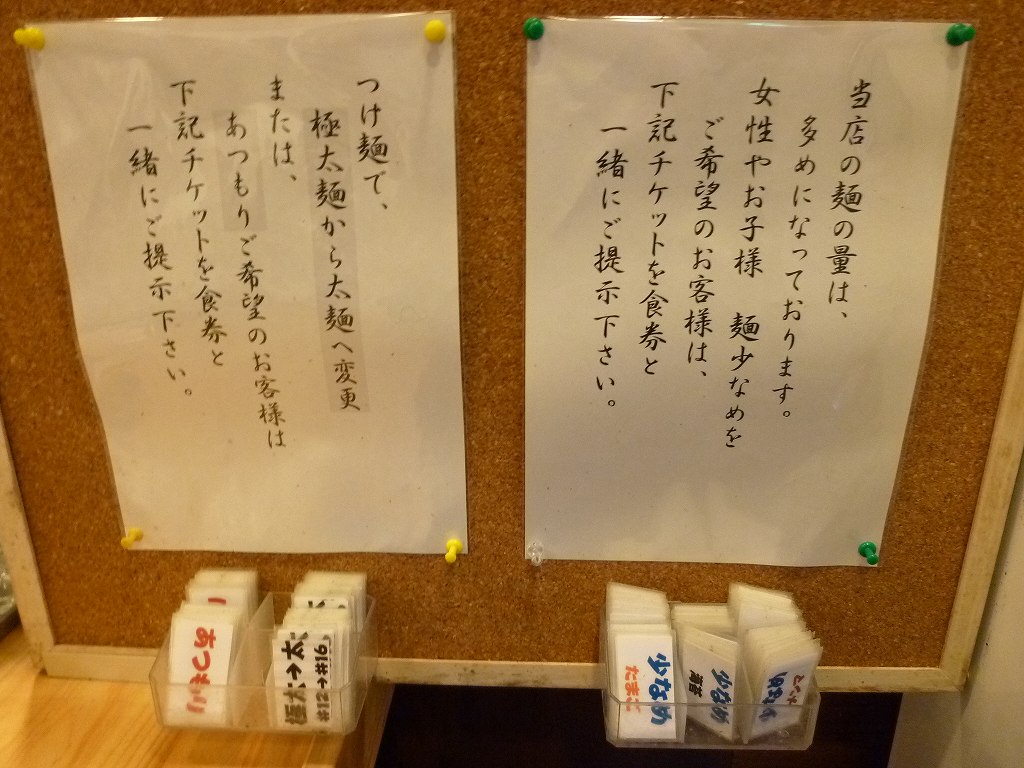 当店の麺の量は、
多めになっております。
女性やお子様 麺少なめを
ご希望のお客様は、
下記チケットを食券と
一緒にご提示下さい。
つけ麺で、
極太麺から太麺へ変更
または、
あつもりご希望のお客様は
下記チケットを食券と
一緒にご提示下さい。
あつもり
極太→太
#12→#16
少なめ
たまご
少なめ
少なめ